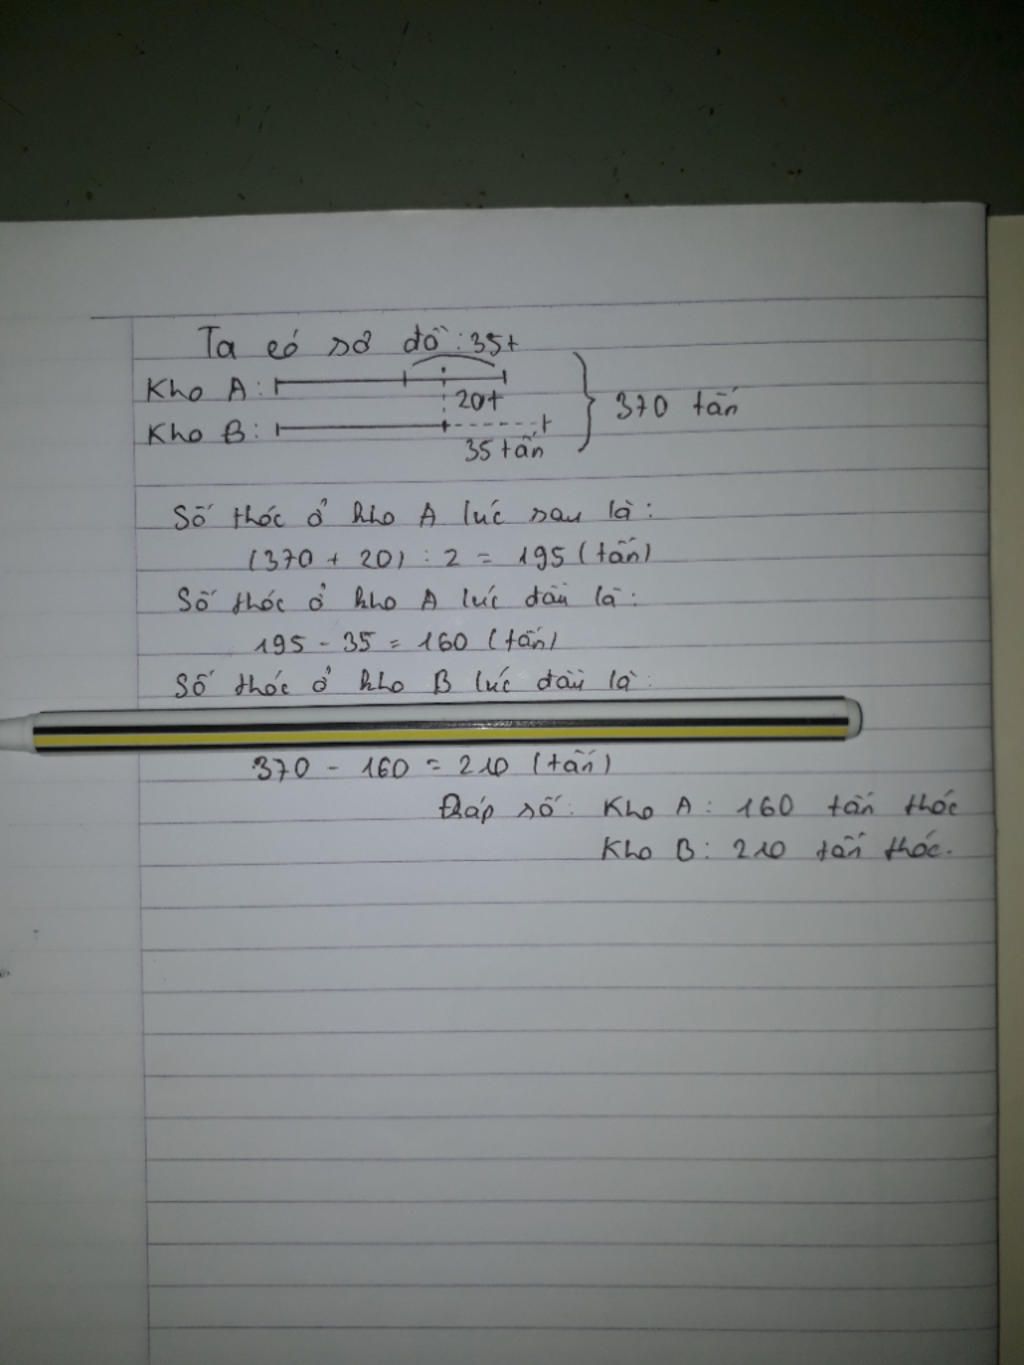 Ta có sơ đồ: 35t
Kho A:
20t
370 tấn
Kho B:
35 tấn
Số thóc ở kho A lúc sau là:
(370 + 20) : 2 = 195 (tấn)
Số thóc ở kho A lúc đầu là:
195 - 35 = 160 (tấn)
Số thóc ở kho B lúc đầu là:
370 - 160 = 210 (tấn)
Đáp số: Kho A: 160 tấn thóc
Kho B: 210 tấn thóc.